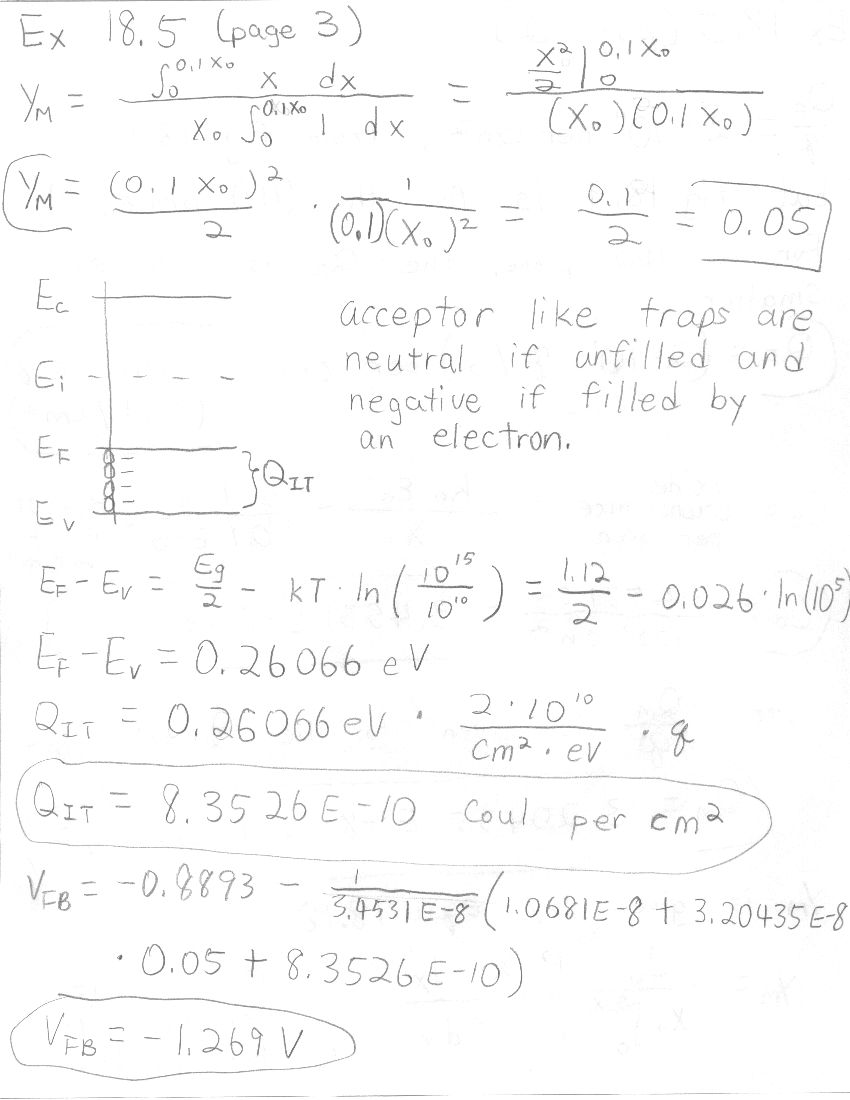 Ex 18.5 (page 3)
γM = ∫₀^0.1X₀ x dx / X₀ ∫₀^0.1X₀ 1 dx = x²/2 |₀^0.1X₀ / (X₀)(0.1X₀)
γM = (0.1 X₀)²/2 · 1/(0.1)(X₀)² = 0.1/2 = 0.05
Ec
acceptor like traps are
Ei
neutral if unfilled and
negative if filled by
an electron.
EF
QIT
Ev
EF - EV = Eg/2 - kT · ln(10¹⁵/10¹⁰) = 1.12/2 - 0.026 · ln(10⁵)
EF - EV = 0.26066 eV
QIT = 0.26066 eV · 2·10¹⁰/cm²·eV · q
QIT = 8.3526E-10 Coul per cm²
VFB = -0.8893 - 1/3.4531E-8 (1.0681E-8 + 3.20435E-8
· 0.05 + 8.3526E-10)
VFB = -1.269 V